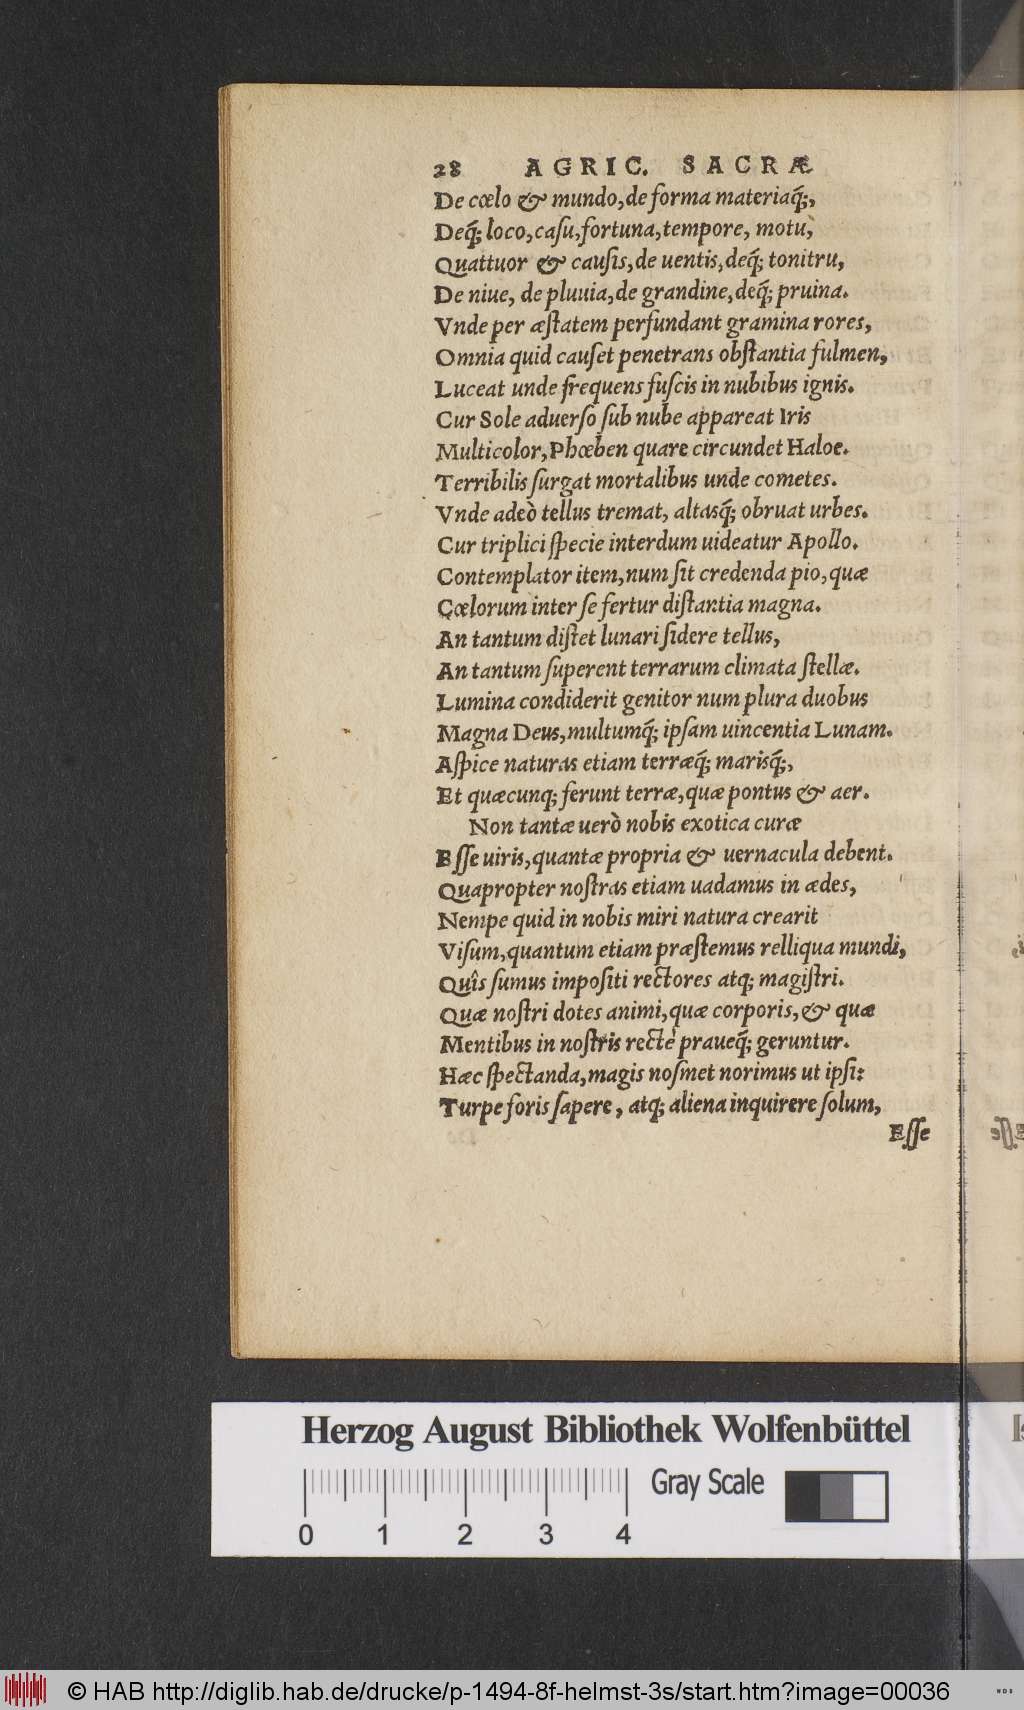 28 AGRIC. SACRÆ
De cœlo & mundo, de forma materiaq́;,
Deq́; loco, caſu, fortuna, tempore, motu,
Quattuor & cauſis, de uentis, deq́; tonitru,
De niue, de pluuia, de grandine, deq́; pruina.
Vnde per æſtatem perfundant gramina rores,
Omnia quid cauſet penetrans obſtantia fulmen,
Luceat unde frequens fuſcis in nubibus ignis.
Cur Sole aduerſo ſub nube appareat Iris
Multicolor, Phœben quare circundet Haloe.
Terribilis ſurgat mortalibus unde cometes.
Vnde adeò tellus tremat, altasq́; obruat urbes.
Cur triplici ſpecie interdum uideatur Apollo.
Contemplator item, num ſit credenda pio, quæ
Cœlorum inter ſe fertur diſtantia magna.
An tantum diſtet lunari ſidere tellus,
An tantum ſuperent terrarum climata ſtellæ.
Lumina condiderit genitor num plura duobus
Magna Deus, multumq́; ipſam uincentia Lunam.
Aſpice naturas etiam terræq́; marisq́;,
Et quæcunq; ferunt terræ, quæ pontus & aer.
Non tantæ uerò nobis exotica curæ
Eſſe uiris, quantæ propria & uernacula debent.
Quapropter noſtras etiam uadamus in ædes,
Nempe quid in nobis miri natura crearit
Viſum, quantum etiam præſtemus relliqua mundi,
Quîs ſumus impoſiti rectores atq; magiſtri.
Quæ noſtri dotes animi, quæ corporis, & quæ
Mentibus in noſtris rectè praueq́; geruntur.
Hæc ſpectanda, magis noſmet norimus ut ipſi:
Turpe foris ſapere, atq; aliena inquirere ſolum,
Eſſe
Herzog August Bibliothek Wolfenbüttel
0 1 2 3 4 Gray Scale
© HAB http://diglib.hab.de/drucke/p-1494-8f-helmst-3s/start.htm?image=00036